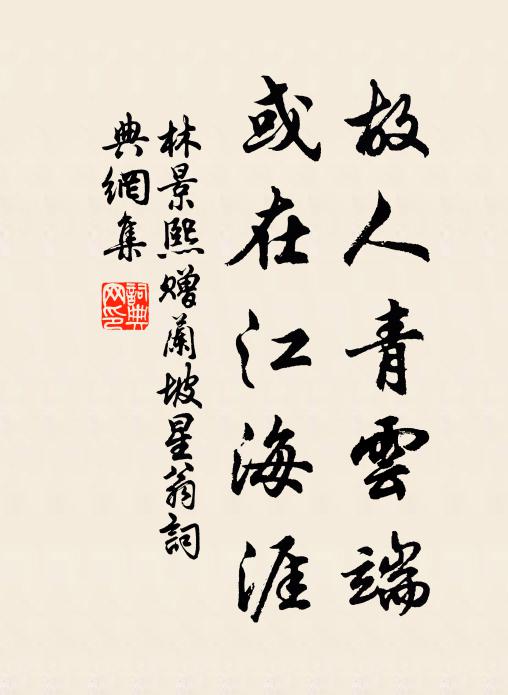 故人青雲端
或在江海涯
林景熙贈蘭坡星翁詞
典網集
詞典
网印